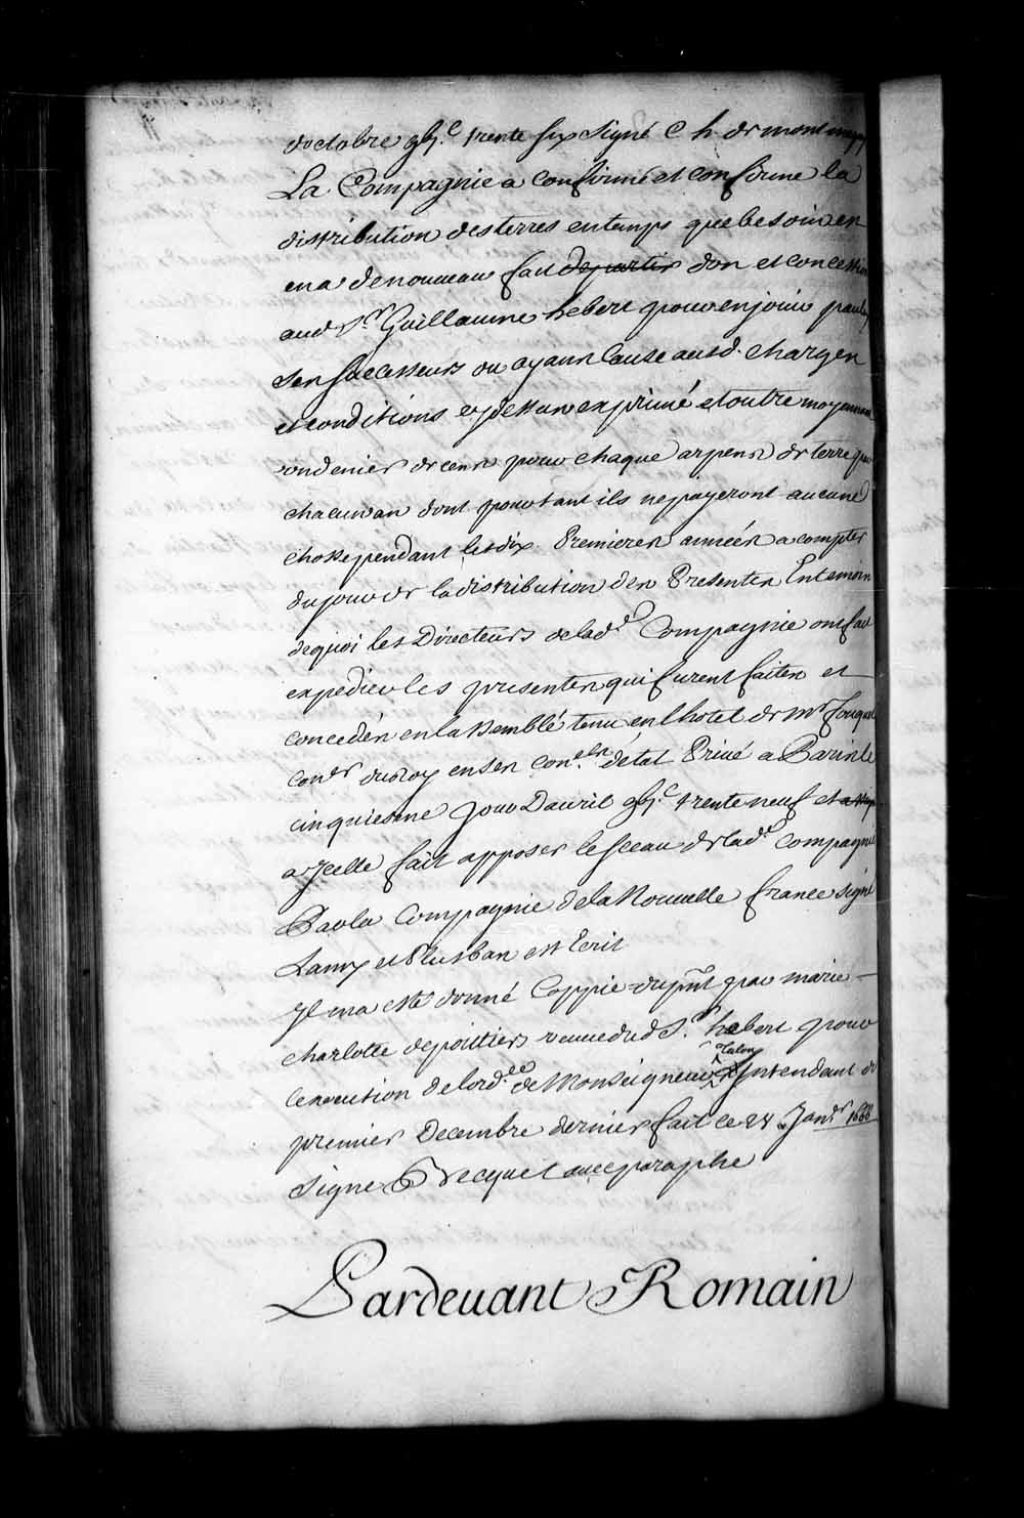 doctobre gbj.c trente six signé C h. de montmagny
La Compagnie a confirmé et confirme la
distribution des terres en temps que besoin en
ena denouveau fait departir don et concession
aud Sr. Guillaume hebert pour enjouir par luy
ses successeurs ou ayans cause ausd. charges
et conditions cy dessus exprimé et outre moyennant
un denier de cens pour chaque arpens de terre par
chacun an dont pourtant ils ne payeront aucune
chosse pendant les dix Premieres années a compter
du jour de la distribution des Presentes En temoin
dequoi les Directeurs de lad.e Compagnie ont fait
expedier les presentes qui furent faites et
concedés en lassemblé tenu en lhotel de mr fouquet
coner du roy en ses con.ls détat Privé a Paris le
cinquiesme Jour Davril gbj.c trente neuf et
a Jcelle fait apposer le sceau de lad.e compagnie
Par la Compagnie de la Nouvelle france signé
Lamy et Plus bas est Ecrit
Jl ma esté donné Coppie du pnt par marie
charlotte depoittiers veuve dud Sr. hebert pour
lexecution de lord.ce de Monseigneur Talon Jntendant du
premier Decembre dernier fait ce 24 Janr 1668
signe Becquet avec paraphe
Pardevant Romain